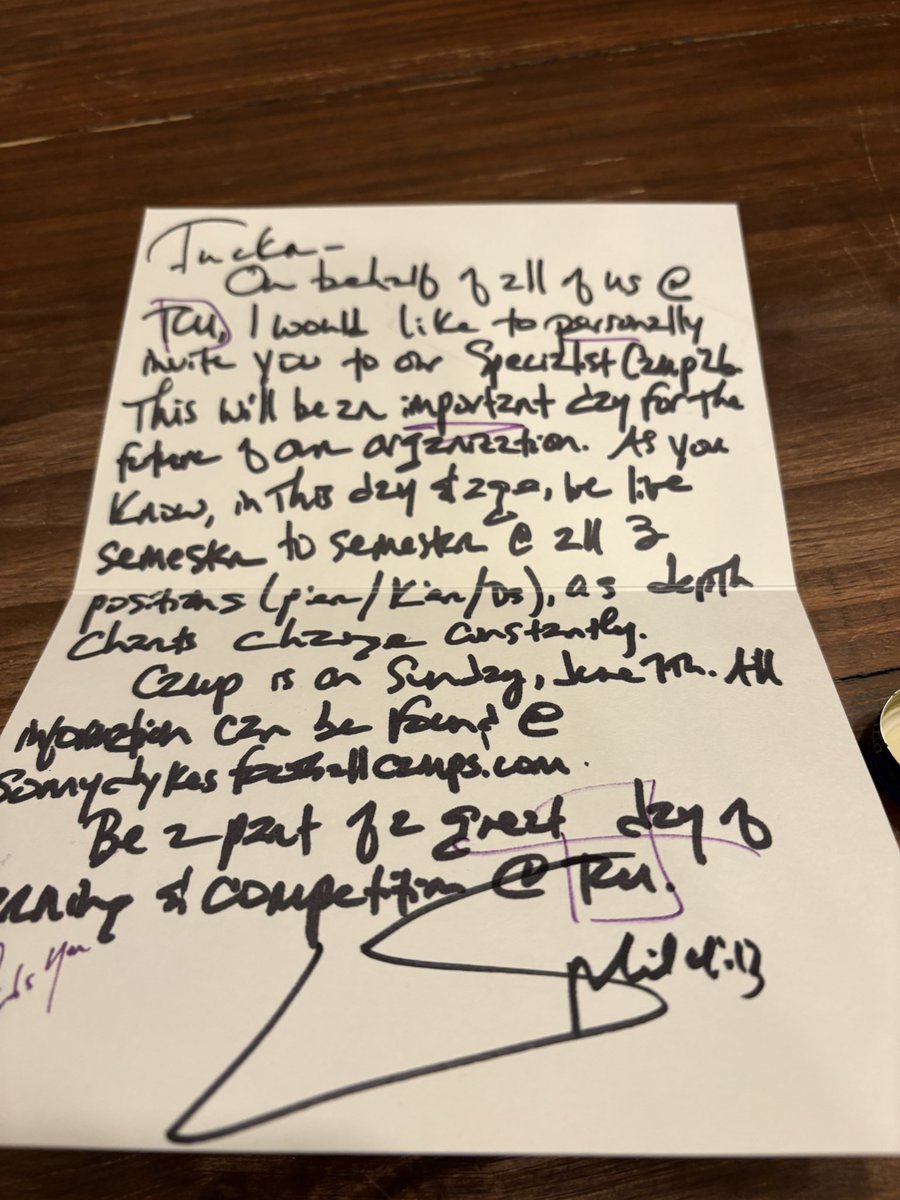 Tucker –
On behalf of all of us @
TCU, I would like to personally
invite you to our Specialist Camp 26.
This will be an important day for the
future of our organization. As you
know, in this day & age, be live
semester to semester @ all 3
positions (
as depth
charts change constantly.
Camp is on Sunday, June 7th. All
information can be found @
Sonnydykesfootballcamps.com.
Be a part of a great day of
& competition @ TCU.
You